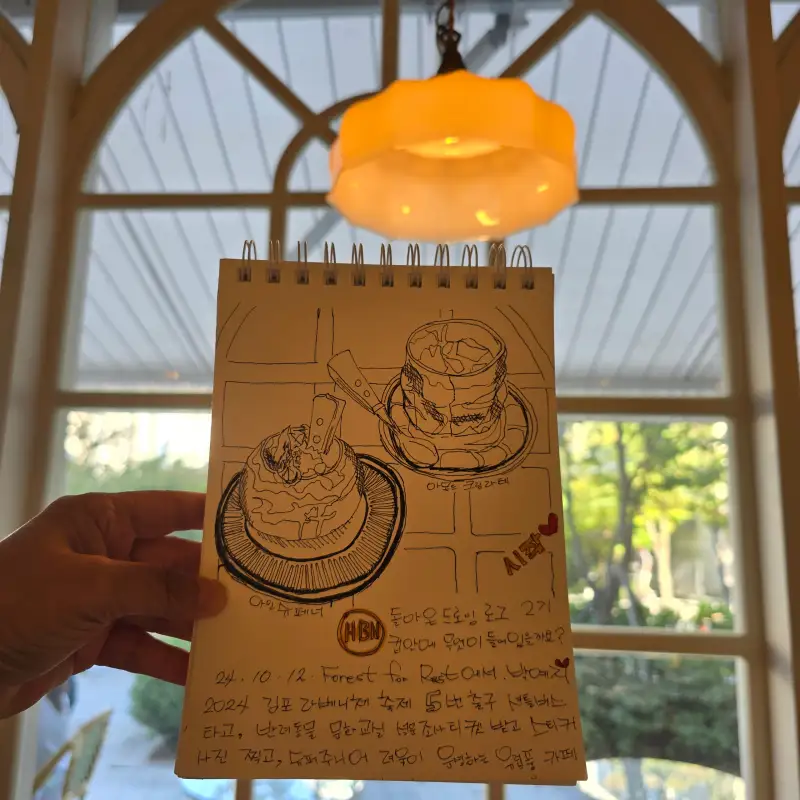 아몬드 크림라떼
시작
아인슈페너
돌아온 드로잉 로그 2기
HBN
컵안에 무엇이 들어있을까요?
24.10.12. Forest for Rest에서. 박예지
2024 김포 라베니체 축제 5번 출구 셔틀버스
타고, 반려동물 문화교실 설문조사 티켓 받고 스티커
사진 찍고, 슈퍼주니어 려욱이 운영하는 유럽풍 카페